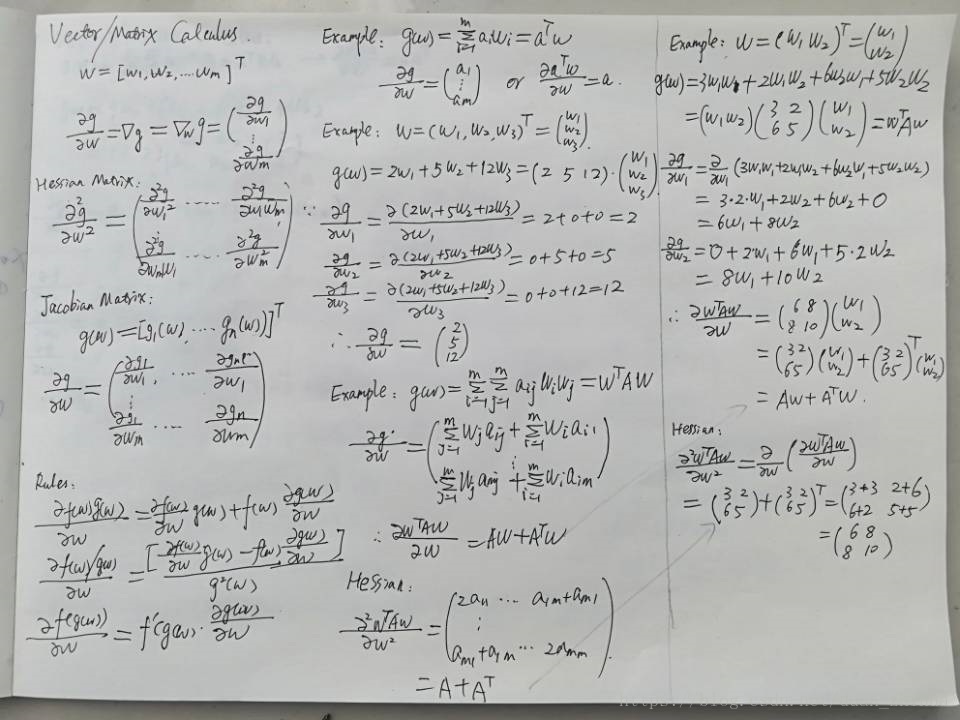 Vector/Matrix Calculus.
w = [w1, w2, ... wm]^T
∂g/∂w = ∇g = ∇w g = (∂g/∂w1 ⋮ ∂g/∂wm)
Hessian Matrix:
∂²g/∂w² = (∂²g/∂w1² ... ∂²g/∂w1wm ⋮ ∂²g/∂wmw1 ... ∂²g/∂wm²)
Jacobian Matrix:
g(w) = [g1(w), ... gn(w)]^T
∂g/∂w = (∂g1/∂w1, ... ∂gn/∂w1 ⋮ ∂g1/∂wm ... ∂gn/∂wm)
Rules:
∂f(w)g(w)/∂w = ∂f(w)/∂w g(w) + f(w) ∂g(w)/∂w
∂f(w)/g(w)/∂w = [∂f(w)/∂w g(w) - f(w) ∂g(w)/∂w] / g²(w)
∂f(g(w))/∂w = f'(g(w)) · ∂g(w)/∂w
Example: g(w) = Σ_{i=1}^m ai wi = a^T w
∂g/∂w = (a1 ⋮ am) or ∂a^T w/∂w = a.
Example: w = (w1, w2, w3)^T = (w1 w2 w3).
g(w) = 2w1 + 5w2 + 12w3 = (2 5 12) · (w1 w2 w3).
∵ ∂g/∂w1 = ∂(2w1+5w2+12w3)/∂w1 = 2+0+0 = 2
∂g/∂w2 = ∂(2w1+5w2+12w3)/∂w2 = 0+5+0 = 5
∂g/∂w3 = ∂(2w1+5w2+12w3)/∂w3 = 0+0+12 = 12
∴ ∂g/∂w = (2 5 12)
Example: g(w) = Σ_{i=1}^m Σ_{j=1}^m aij wi wj = w^T A w
∂g/∂w = (Σ_{j=1}^m wj aij + Σ_{i=1}^m wi ai1 ⋮ Σ_{j=1}^m wj amj + Σ_{i=1}^m wi aim)
∴ ∂w^T A w/∂w = Aw + A^T w
Hessian:
∂²w^T A w/∂w² = (2a11 ... a1m+am1 ⋮ am1+a1m ... 2amm).
= A + A^T
Example: w = (w1 w2)^T = (w1 w2)
g(w) = 3w1w1 + 2w1w2 + 6w2w1 + 5w2w2
= (w1 w2) (3 2 6 5) (w1 w2) = w^T A w
∂g/∂w1 = ∂/∂w1 (3w1w1 + 2w1w2 + 6w2w1 + 5w2w2)
= 3·2·w1 + 2w2 + 6w2 + 0
= 6w1 + 8w2
∂g/∂w2 = 0 + 2w1 + 6w1 + 5·2w2
= 8w1 + 10w2
∴ ∂w^T A w/∂w = (6 8 8 10) (w1 w2)
= (3 2 6 5) (w1 w2) + (3 2 6 5)^T (w1 w2)
= Aw + A^T w.
Hessian:
∂²w^T A w/∂w² = ∂/∂w (∂w^T A w/∂w)
= (3 2 6 5) + (3 2 6 5)^T = (3+3 2+6 6+2 5+5)
= (6 8 8 10)